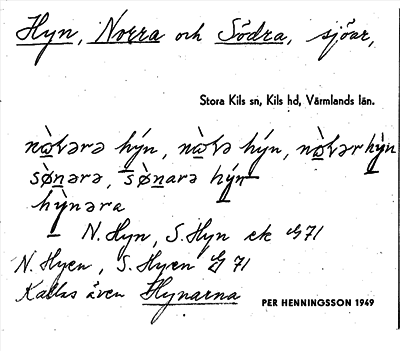 Hyn, Norra och Södra, sjöar,
Stora Kils sn, Kils hd, Värmlands län.
nòlərə hýn, nòlə hýn, nòlər hýn
sǿnərə, sǿnarə hýn
hỳnəra
N. Hyn, S. Hyn ek G 71
N. Hyen, S. Hyen G 71
Kallas även Hynarna
PER HENNINGSSON 1949